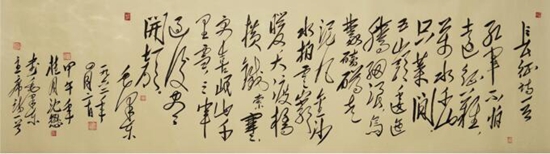 长征诗一首
红军不怕
远征难
万水千山
只等闲
五岭逶迤
腾细浪乌
蒙磅礴走
泥丸金沙
水拍云崖
暖大渡桥
横铁索寒
更喜岷山千
里雪三军
过后尽
开颜
毛泽东
一九六二年
四月二十日
甲午年
桂月
书毛泽东
主席诗一首